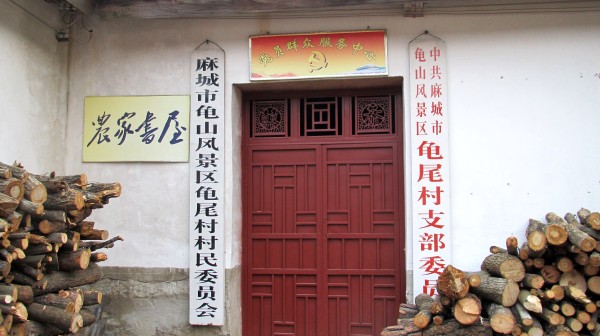 党员群众服务中心
农家书屋
麻城市龟山风景区龟尾村村民委员会
中共麻城市
龟山风景区
龟尾村支部委员